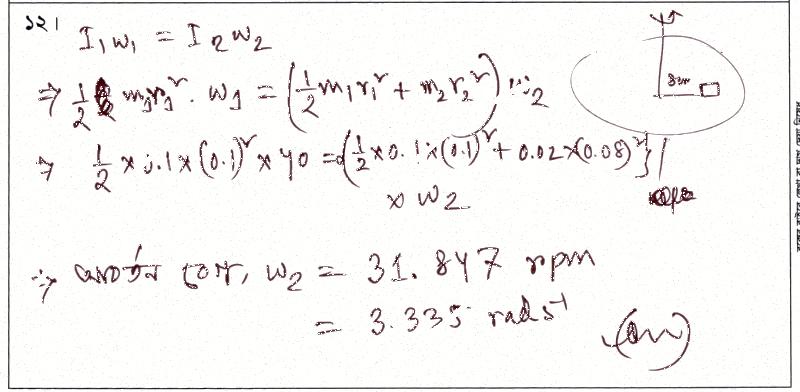 ১২।
I₁ω₁ = I₂ω₂
8cm
⇒ 1/2 m₁r₁² . ω₁ = (1/2 m₁r₁² + m₂r₂²) ω₂
⇒ 1/2 × 0.1 × (0.1)² × 40 = {1/2 × 0.1 × (0.1)² + 0.02 × (0.08)²}
× ω₂
∴ আবর্তন বেগ, ω₂ = 31.847 rpm
= 3.335 rad s⁻¹
(Ans)